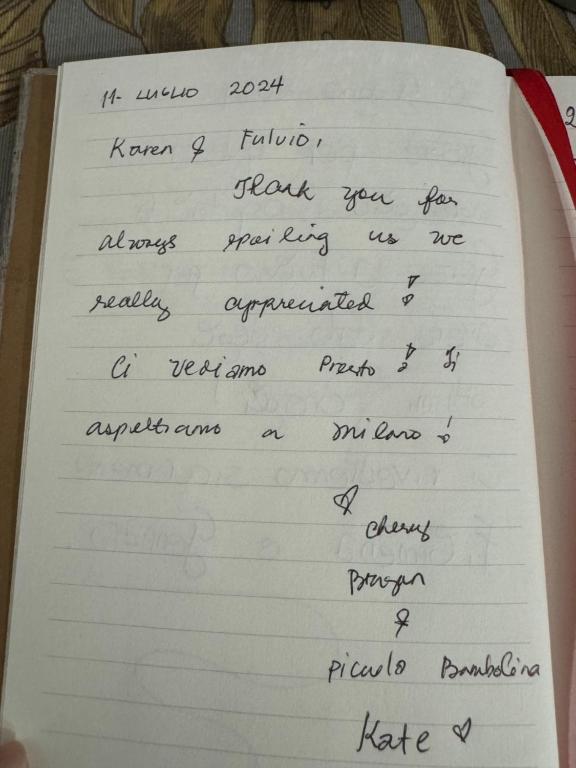 11 - LUGLIO 2024
Karen & Fulvio,
Thank you for
always spoiling us we
really appreciated !
Ci vediamo Presto ! Ti
aspettiamo a milano !
Cheryl
&
Piccolo Bambolina
Kate ♡
2